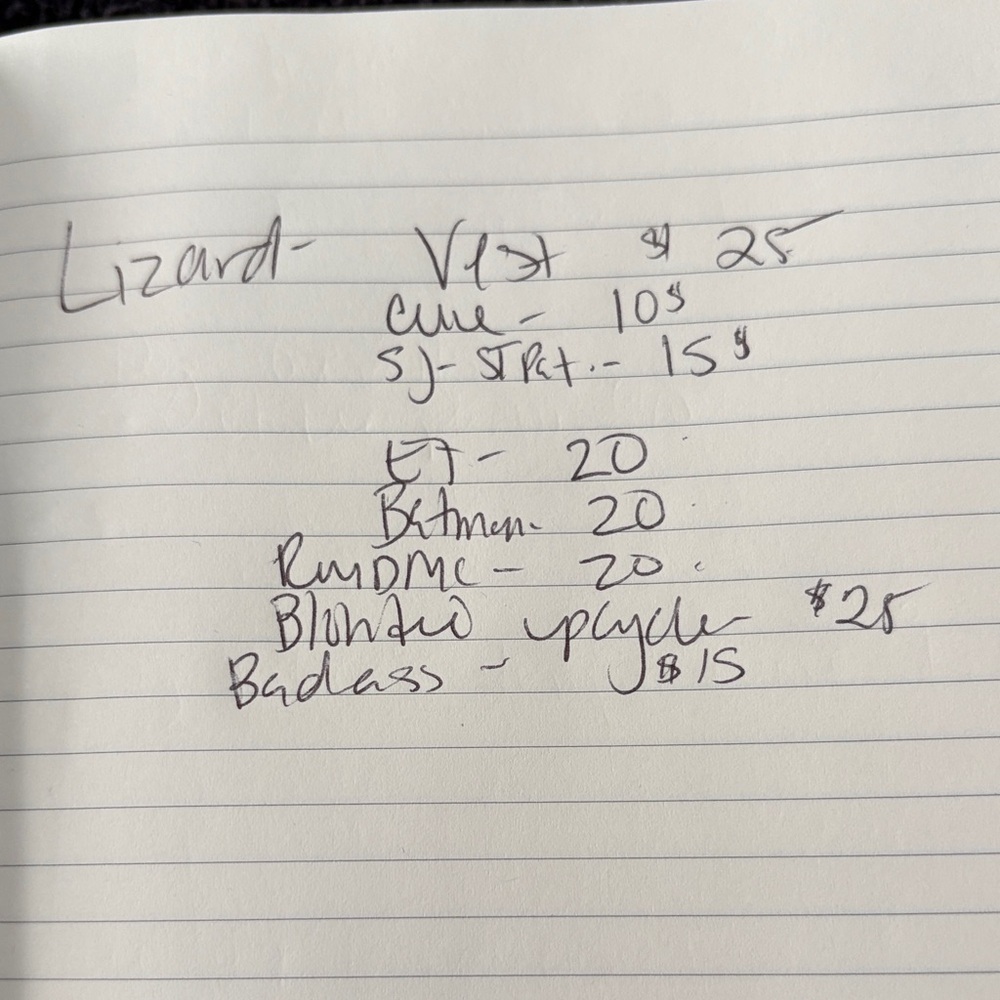 Lizard- Vest $ 25
Cure - 10$
SJ- ST Pat. - 15$
ET - 20
Batman - 20
RunDMC - 20
upcycle $25
Badass - $15